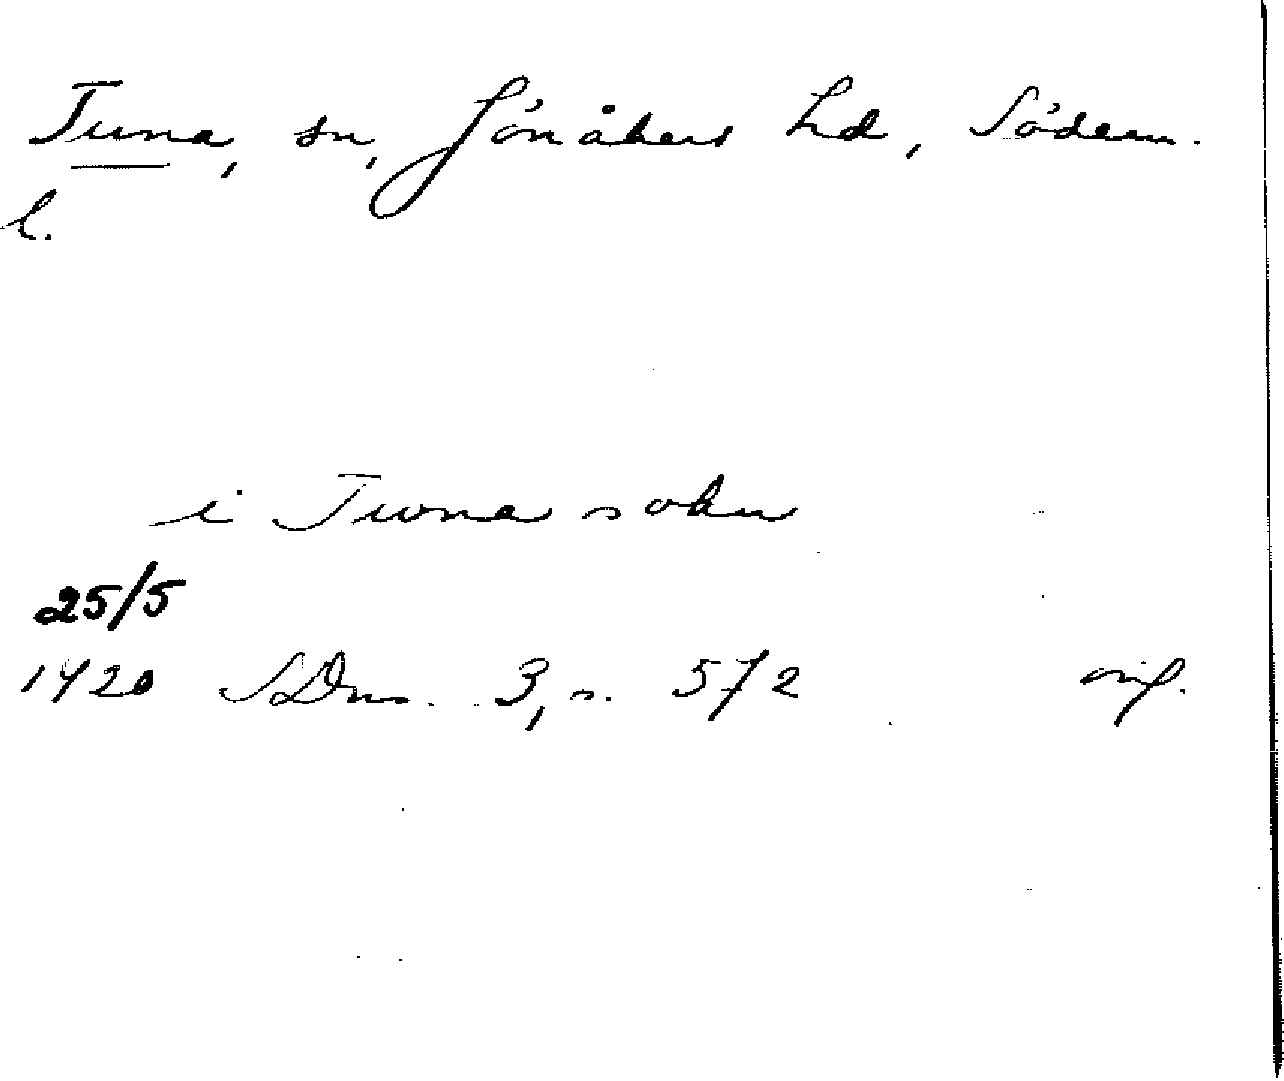 Tuna, sn, Jönåkers hd, Söderm.
l.
i Twna sokn
25/5
1420 SDns. 3, s. 572 orig.